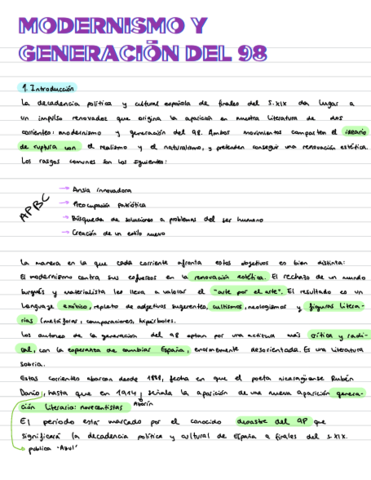 MODERNISMO Y
GENERACIÓN DEL 98
1. Introducción
La decadencia política y cultural española de finales del S.XIX da lugar a
un impulso renovador que origina la aparición en nuestra literatura de dos
corrientes: modernismo y generación del 98. Ambos movimientos comparten el ideario
de ruptura con el realismo y el naturalismo, y pretenden conseguir una renovación estética.
Los rasgos comunes son los siguientes:
APBC
→ Ansia innovadora
→ Preocupación patriótica
→ Búsqueda de soluciones a problemas del ser humano
→ Creación de un estilo nuevo
La manera en la que cada corriente afronta estos objetivos es bien distinta:
El modernismo centra sus esfuerzos en la renovación estética. El rechazo de un mundo
burgués y materialista les lleva a valorar el "arte por el arte". El resultado es un
lenguaje exótico, repleto de adjetivos sugerentes, cultismos, neologismos y figuras litera-
rias (metáforas, comparaciones, hipérboles.
Los autores de la generación del 98 optan por una actitud más crítica y radi-
cal, con la esperanza de cambiar España, enormemente desorientada. Es una literatura
sobria.
Estas corrientes abarcan desde 1888, fecha en que el poeta nicaragüense Rubén
Darío, hasta que en 1914, señala la aparición de una nueva aparición genera-
ción literaria: novecentistas
Azorín
El período está marcado por el conocido desastre del 98 que
significará la decadencia política y cultural de España a finales del S.XIX.
publica "Azul"